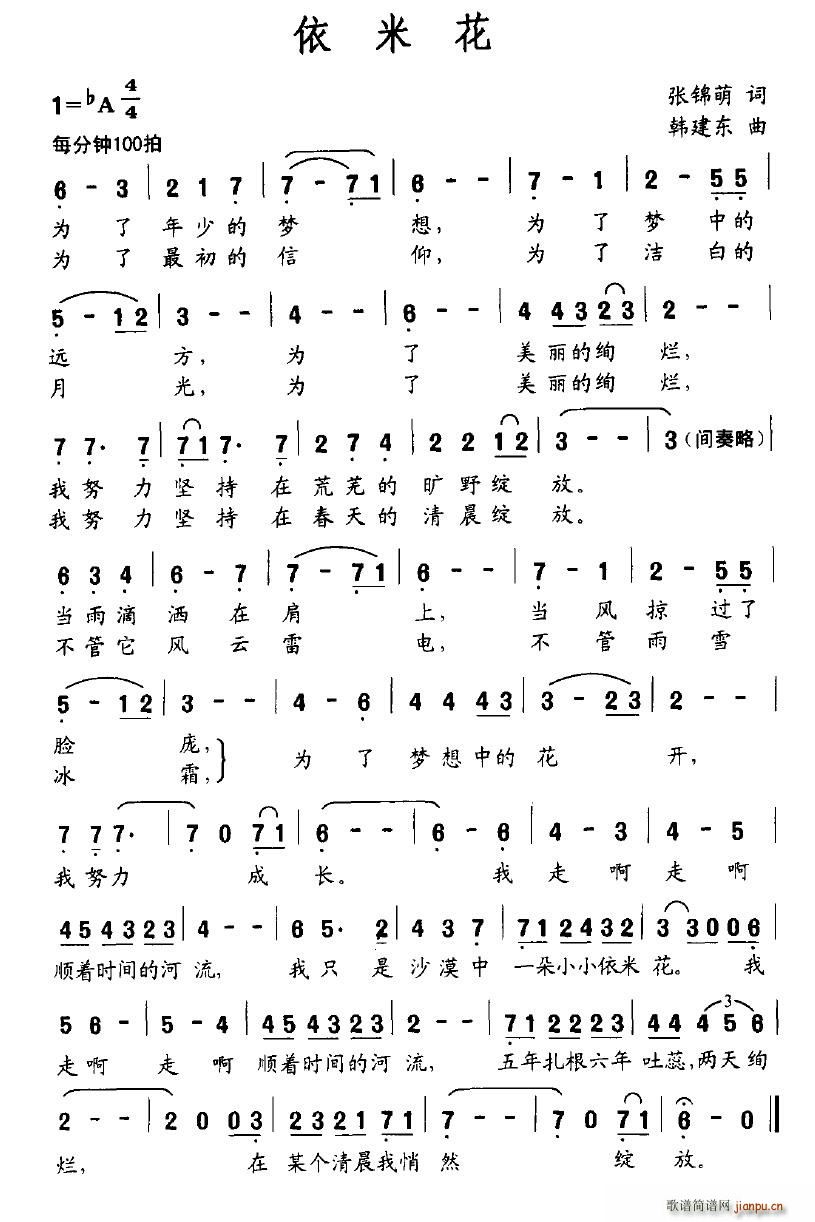 依米花
1=♭A 4/4
张锦萌 词
每分钟100拍
韩建东 曲
6 - 3 | 2 1 7 | 7 - 7 1 | 6 - - | 7 - 1 | 2 - 5 5 |
为了年少的梦想,为了梦中的
为了最初的信仰,为了洁白的
5 - 1 2 | 3 - - | 4 - - | 6 - - | 4 4 3 2 3 | 2 - - |
远方,为了美丽的绚烂,
月光,为了美丽的绚烂,
7 7· 7 | 7 1 7· 7 | 2 7 4 | 2 2 1 2 | 3 - - | 3(间奏略)|
我努力坚持在荒芜的旷野绽放。
我努力坚持在春天的清晨绽放。
6 3 4 | 6 - 7 | 7 - 7 1 | 6 - - | 7 - 1 | 2 - 5 5 |
当雨滴洒在肩上,当风掠过了
不管它风云雷电,不管雨雪
5 - 1 2 | 3 - - | 4 - 6 | 4 4 4 3 | 3 - 2 3 | 2 - - |
脸庞,}为了梦想中的花开,
冰霜,
7 7 7· | 7 0 7 1 | 6 - - | 6 - 6 | 4 - 3 | 4 - 5 |
我努力成长。我走啊走啊
4 5 4 3 2 3 | 4 - - | 6 5· 2 | 4 3 7 | 7 1 2 4 3 2 | 3 3 0 0 6 |
顺着时间的河流,我只是沙漠中一朵小小依米花。我
5 6 - | 5 - 4 | 4 5 4 3 2 3 | 2 - - | 7 1 2 2 2 3 | 4 4 4 5 6 |
3
走啊走啊顺着时间的河流,五年扎根六年吐蕊,两天绚
2 - - | 2 0 0 3 | 2 3 2 1 7 1 | 7 - - | 7 0 7 1 | 6 - 0 ‖
烂,在某个清晨我悄然绽放。
歌谱简谱网
jianpu.cn